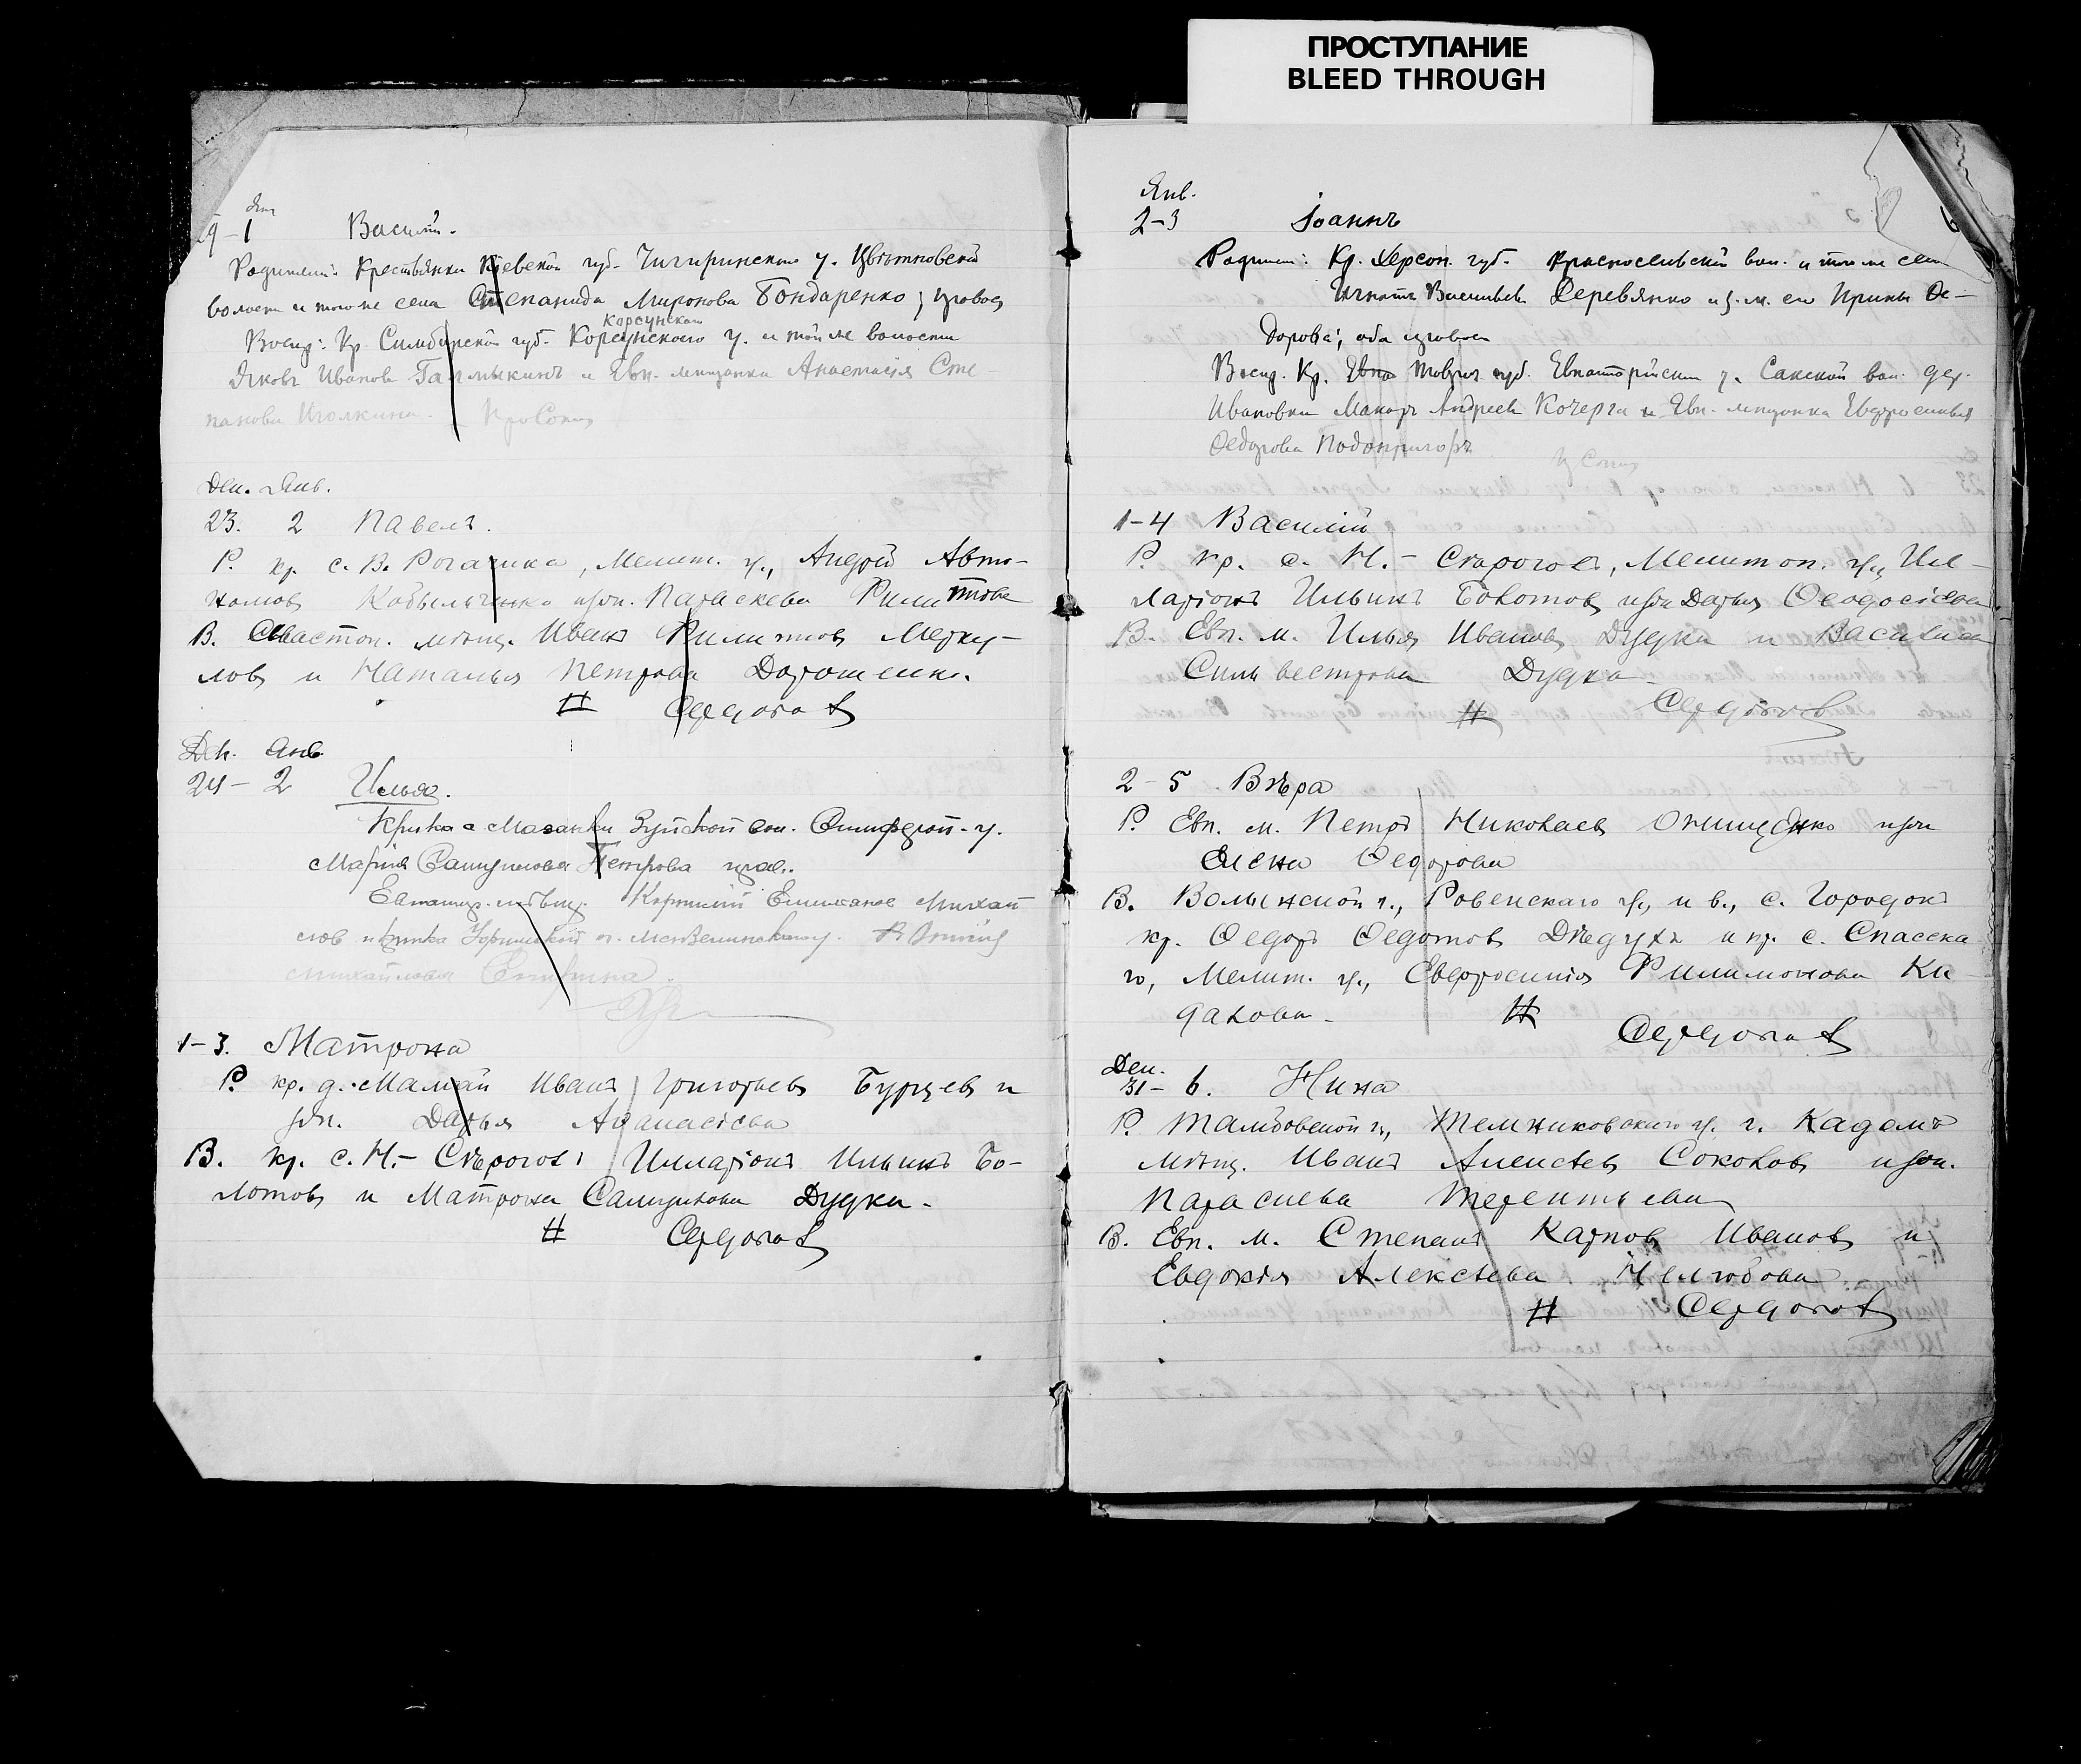 ПРОСТУПАНИЕ
BLEED THROUGH
Янв
29-1 Василій.
Родители: Крестьянка Кіевской губ. Чигиринскаго у. Цвѣтновской
волости и того же села Степанида Миронова Бондаренко; правос
Корсунскаго
Воспр: Кр. Симбирской губ. Корсунского у. и той же волости
Яковъ Иванов и Евп. мещанка Анастасія Сте
панова Иголкина.
Дек. Янв.
23. 2 Павелъ.
Р. кр. с. В. Рогачика, Мелит. у., Андрей Авто-
номовъ Кобыльченко и зак. Параскева Филиппова
В. Севастоп. мѣщ. Иванъ Филиппов Мерку-
ловъ и Наталья Петрова Дорошенко.
# Середоновъ
Дек. Янв
24-2 Илья.
Кр-нка с. Мазанки Зуйской вол. Симфероп. у.
Марія Самуилова Петрова прав.
Евпатор. мѣщ. Емиліанов Михай
лов и кр-нка
Михайловна
1-3. Матрона
Р. кр. д. Мамай Иванъ Григорьевъ Бурцев и
зак. Дарья Аѳанасіева
В. кр. с. Н.- Сѣрогозъ Илларіонъ Ильинъ Бо-
лотовъ и Матрона Самуилова Дудка.
# Середоновъ
Янв. 6
2-3 Іоаннъ
Родит: Кр. Херсон. губ. Красносельской вол. и того же села
Игнатъ Васильевъ Деревянко и з. ж. его Ирина Ѳе-
дорова; оба правос
Воспр. Кр. Таврич. губ. Евпаторійскаго у. Сакской вол. дер.
Ивановки Макаръ Андреев Кочерга и Евп. мещанка Евфросинія
Ѳедорова Подопригора
1-4 Василій
Р. кр. с. Н.- Сѣрогозъ, Мелитоп. у., Ил-
ларіонъ Ильинъ Болотовъ и зак Дарья Ѳеодосіева
В. Евп. м. Илья Ивановъ Дудка и Василиса
Сильвестрова Дудка
# Середоновъ
2-5 Вѣра
Р. Евп. м. Петръ Николаевъ Онищенко и зак
Елена Ѳедорова
В. Волынской г., Ровенскаго у., и в., с. Городокъ
кр. Ѳедоръ Ѳедотовъ Дѣдухъ и кр. с. Спасска
го, Мелит. у., Евфросинія Филимонова Ка
дакова.
# Середоновъ
Дек.
31-6. Нина
Р. Тамбовской г., Темниковскаго у. г. Кадомъ
мѣщ. Иванъ Алексѣевъ Соколовъ и зак.
Параскева Терентьева
В. Евп. м. Степанъ Карповъ Ивановъ и
Евдокія Алексѣева Нелюбова
# Середоновъ